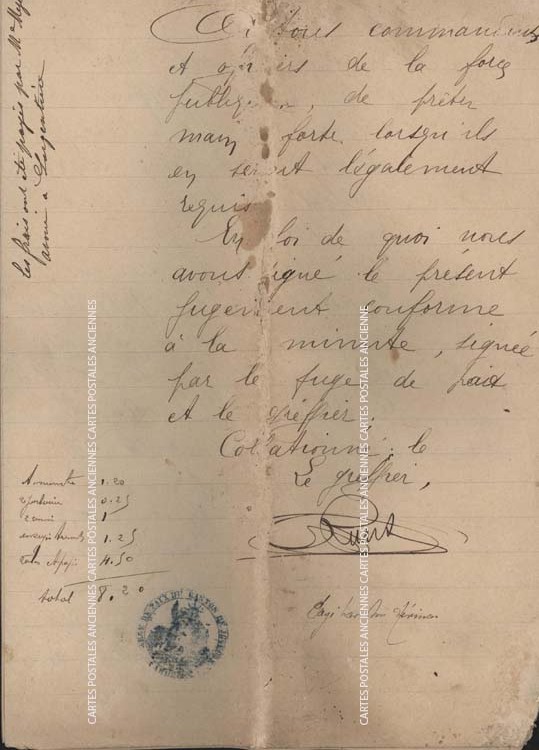 Et tous commandants
et officiers de la force
publique, de prêter
main forte lorsqu'ils
en seront légalement
requis
En foi de quoi nous
avons signé le présent
jugement conforme
à la minute, signée
par le juge de paix
et le greffier.
Collationné. le
Le greffier,
les frais ont été payés par Me
avoué à Largentière
1.20
0.25
1
1.25
4.50
total 8.20
CARTES POSTALES ANCIENNES CARTES POSTALES ANCIENNES CARTES POSTALES ANCIENNES
CARTES POSTALES ANCIENNES CARTES POSTALES ANCIENNES CARTES POSTALES ANCIENNES